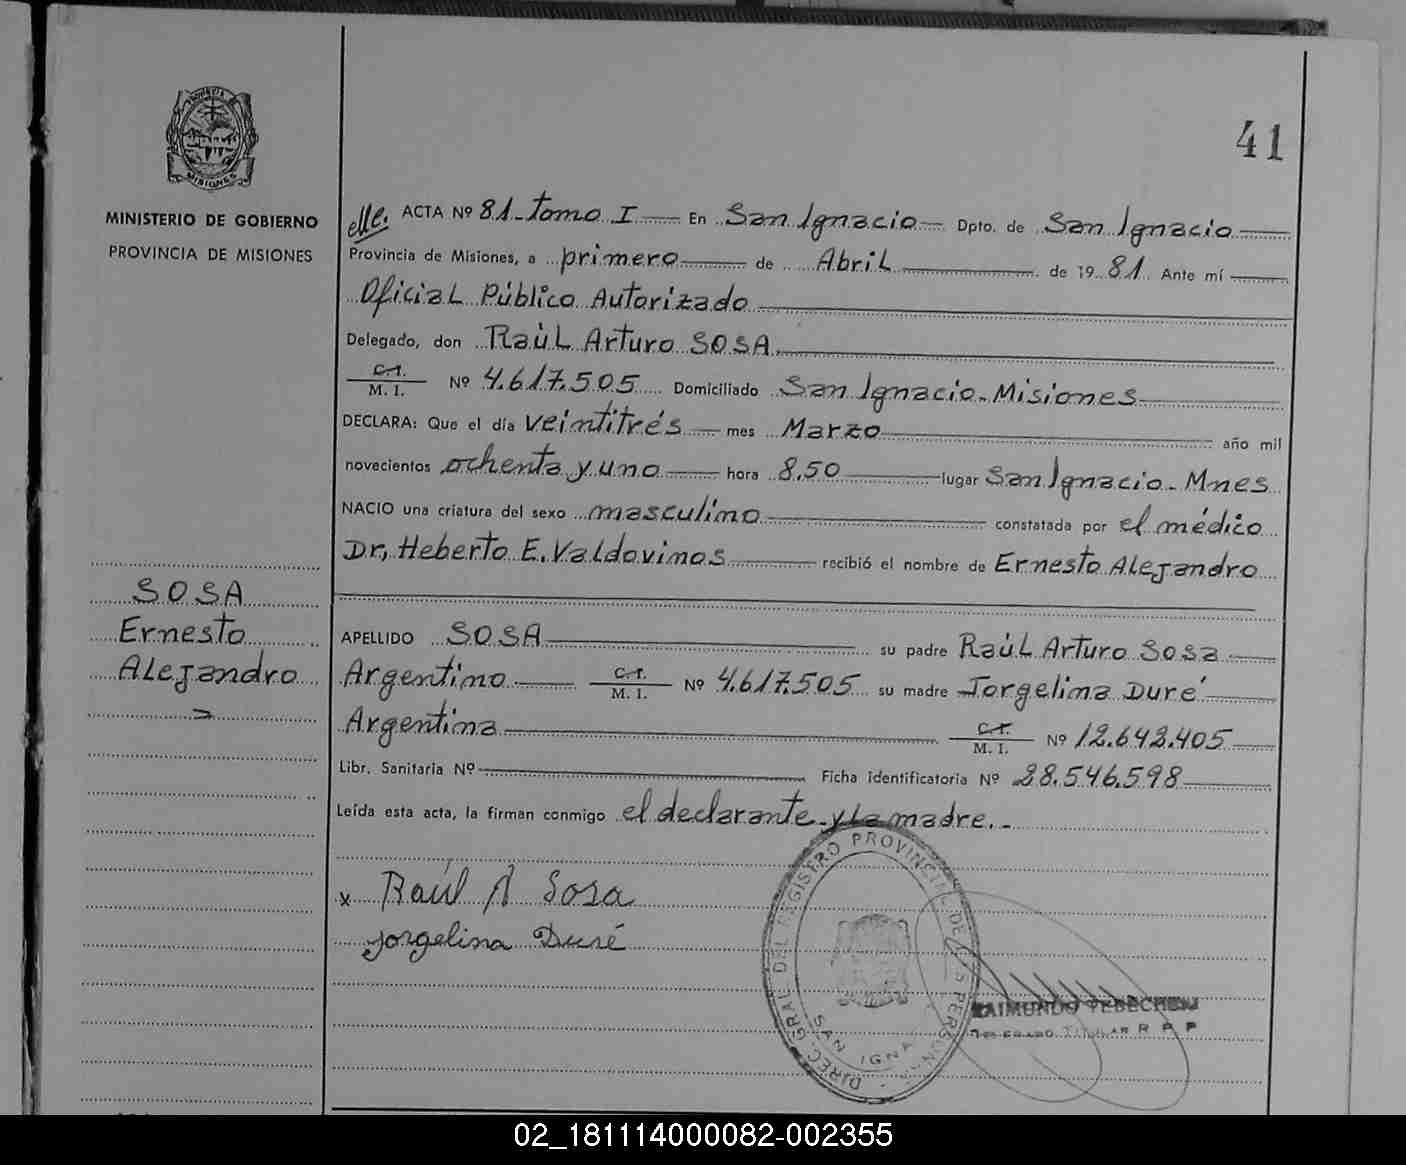 41
PROVINCIA DE
MISIONES
MINISTERIO DE GOBIERNO
PROVINCIA DE MISIONES
SOSA
Ernesto
Alejandro
elle. ACTA Nº 81-Tomo I En San Ignacio Dpto. de San Ignacio
Provincia de Misiones, a primero de Abril de 1981 Ante mí
Oficial Público Autorizado
Delegado, don Raúl Arturo SOSA
C.I.
M. I. Nº 4.617.505 Domiciliado San Ignacio-Misiones
DECLARA: Que el día veintitrés mes Marzo año mil
novecientos ochenta y uno hora 8,50 lugar San Ignacio-Mnes
NACIO una criatura del sexo masculino constatada por el médico
Dr, Heberto E. Valdovinos recibió el nombre de Ernesto Alejandro
APELLIDO SOSA su padre Raúl Arturo Sosa
Argentino C.I. M. I. Nº 4.617.505 su madre Jorgelina Duré
Argentina C.I. M. I. Nº 12.642.405
Libr. Sanitaria Nº Ficha identificatoria Nº 28.546.598
Leída esta acta, la firman conmigo el declarante y la madre.-
x Raúl A Sosa
Jorgelina Duré
DIREC. GRAL DEL REGISTRO PROVINCIAL DE LAS PERSONAS
SAN IGNA
RAIMUNDO
DELEGADO TITULAR R P P
02_181114000082-002355